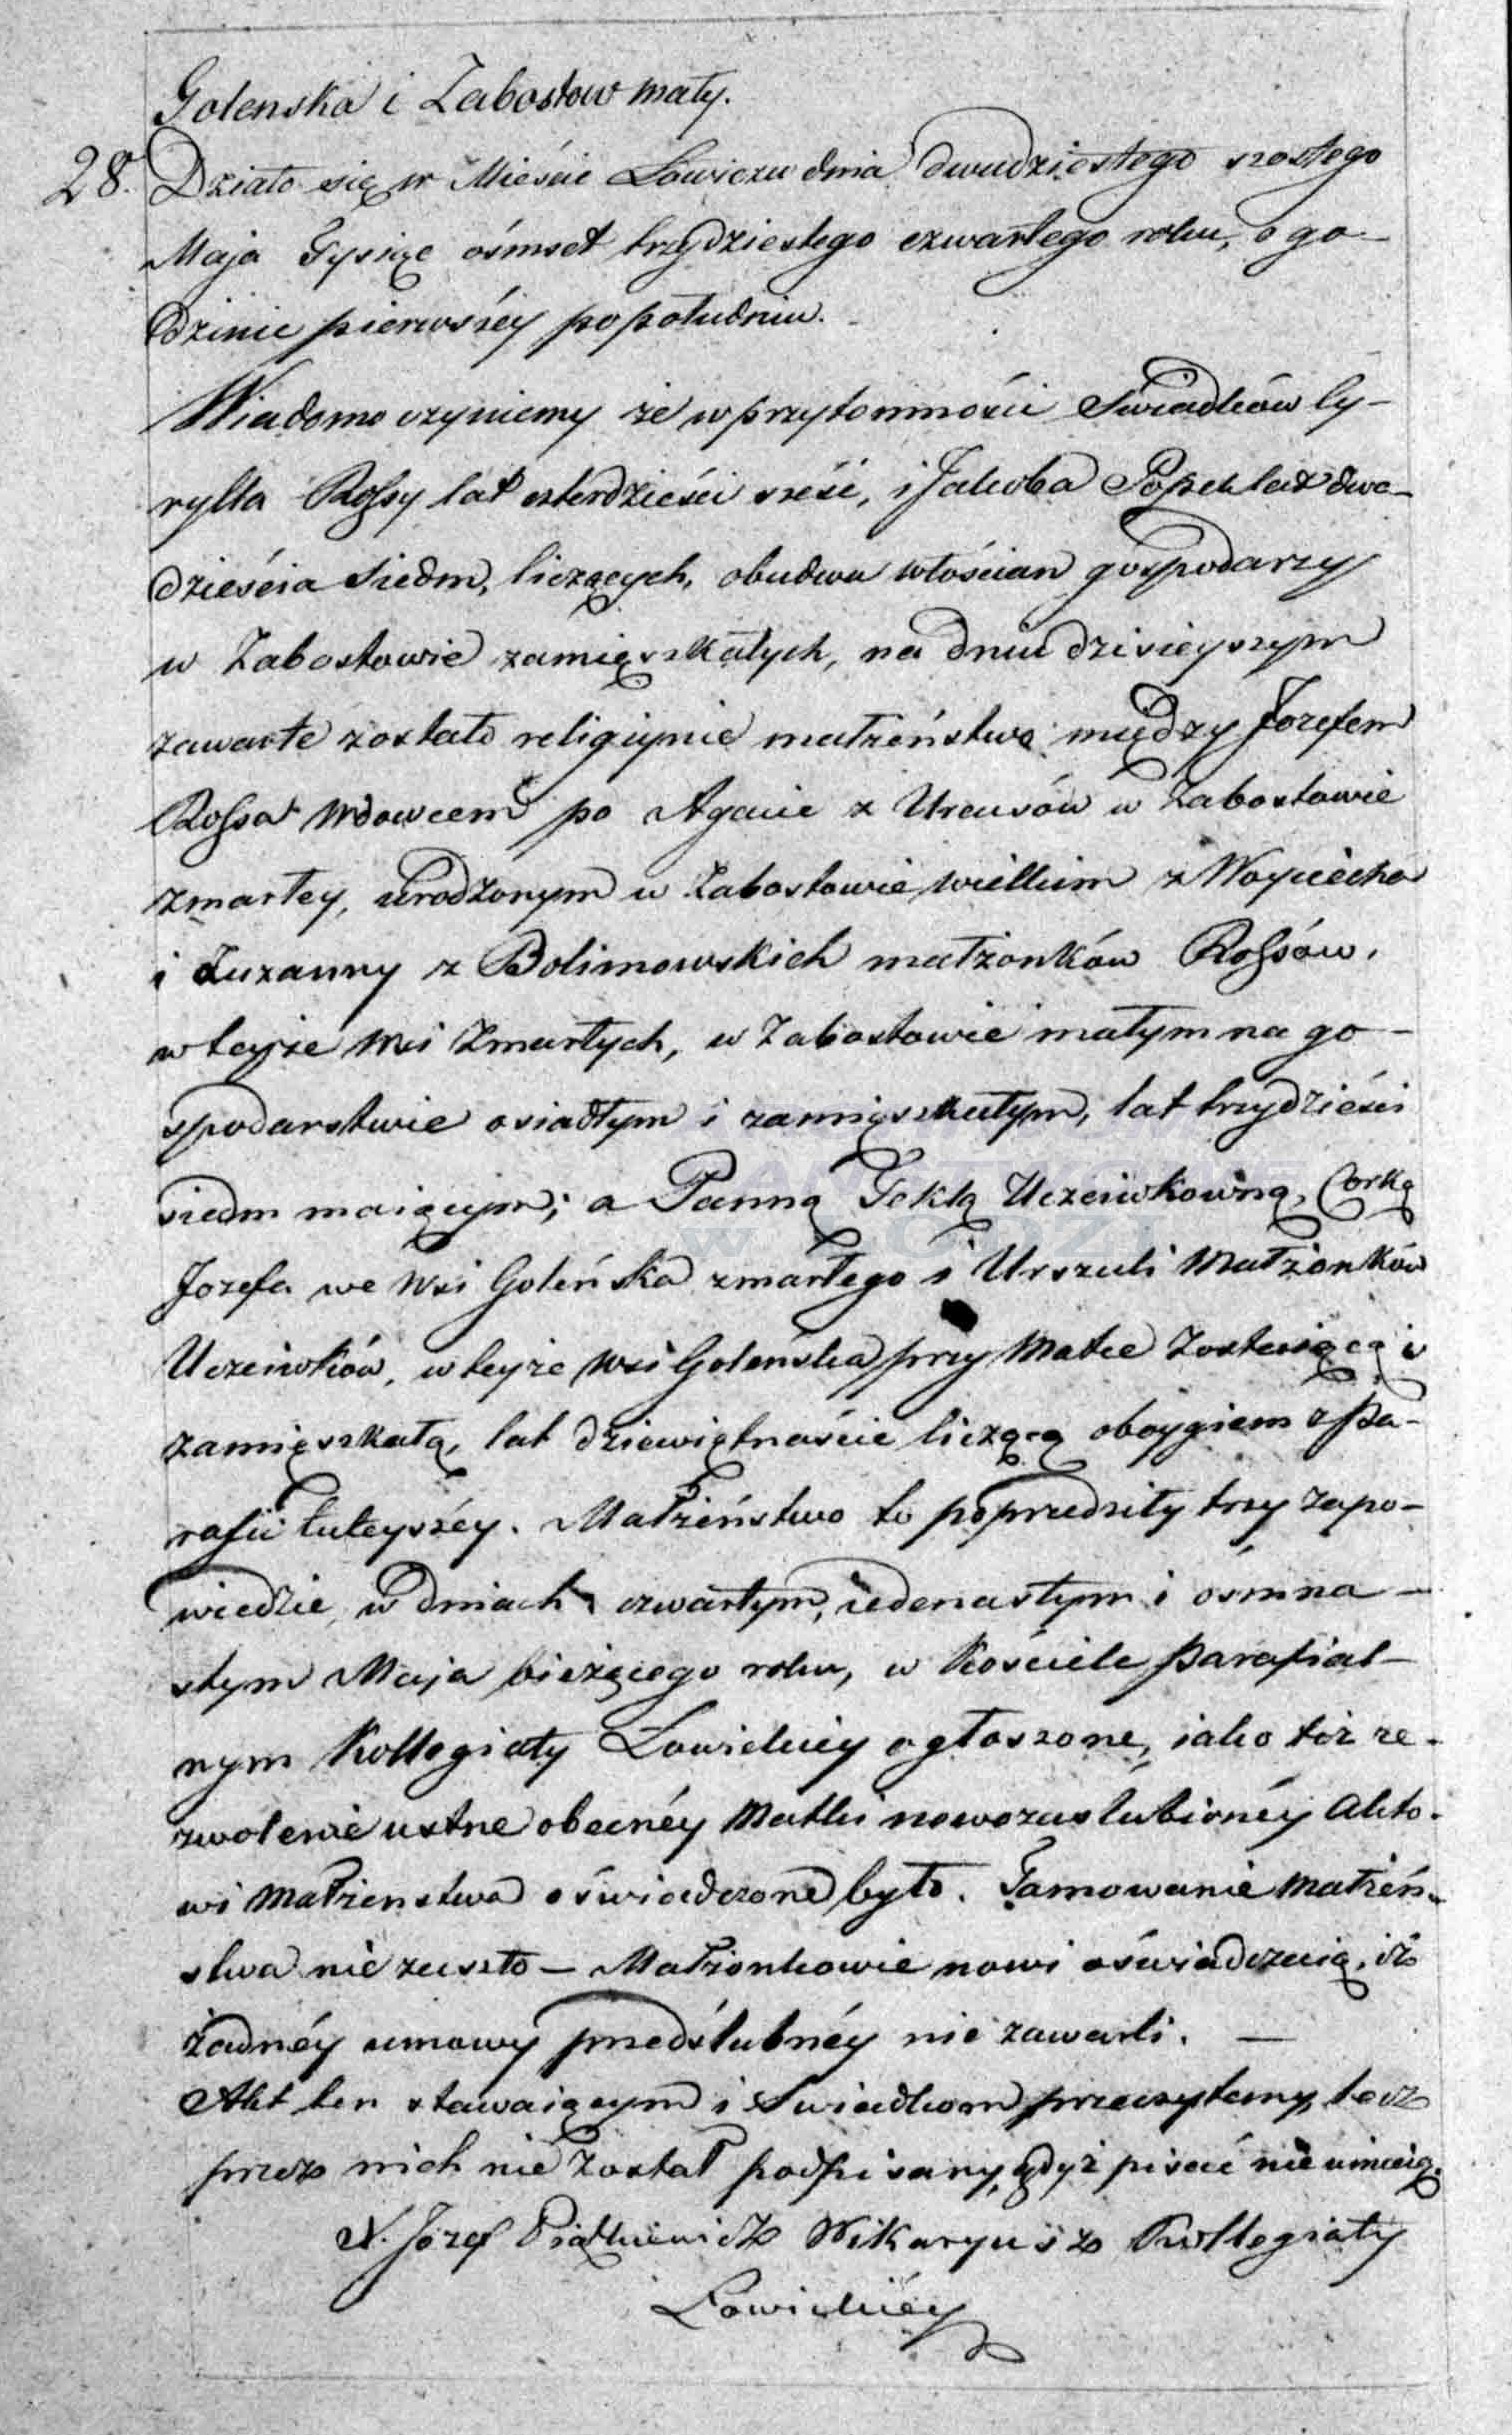 Golenska i Zabostow mały.
28. Działo się w Mieście Łowiczu dnia dwudziestego szostego
Maja Tysiąc ośmset trzydziestego czwartego roku, o go-
dzinie pierwszéy popołudniu.
Wiadomo czyniemy że w przytomności Swiadków Cy-
rylla Rossy lat czterdzieści sześć, i Jakoba Popek lat dwa-
dzieścia siedm, liczących, obudwu włościan gospodarzy
w Zabostowie zamięszkałych, na dniu dzisieyszym
zawarte zostało religiynie małżeństwo między Jozefem
Rossa Wdowcem po Agacie z Urcusów w Zabostowie
zmarłey, urodzonym w Zabostowie wielkim z Woyciecha
i Zuzanny z Bolimowskich małżonków Rossów,
w teyże Wsi Zmarłych, w Zabostowie małym na go-
spodarstwie osiadłym i zamięszkałym, lat trzydzieści
siedm maiącym; a Panną Teklą Uczciwkowną, Corką
Jozefa we Wsi Goleńska zmarłego i Urszuli Małżonków
Uczciwków, w teyże Wsi Goleńska przy Matce Zostaiącą i
zamięszkałą, lat dziewiętnaście liczącą oboygiem z Pa-
rafii tuteyszéy. Małżeństwo to poprzedziły trzy zapo-
wiedzie, w dniach czwartym, iedenastym i ósmna-
stym Maja bieżącego roku, w Kościele parafial-
nym Kollegiaty Łowickiéy ogłoszone, iako też ze-
zwolenie ustne obecnéy Matki nowozaslubionéy Akto-
wi Małżenstwa oświadczone było. Tamowanie Małżeń-
stwa nie zaszło – Małżonkowie nowi oświadczaią, iż
żadnéy umowy przedślubnéy nie zawarli. –
Akt ten stawaiącym i Swiadkom przeczytany, lecz
przez nich nie został podpisany, gdyż pisać nie umieią.
X. Józef Piątkiewicz Wikaryusz Kollegiaty
Łowickiéy